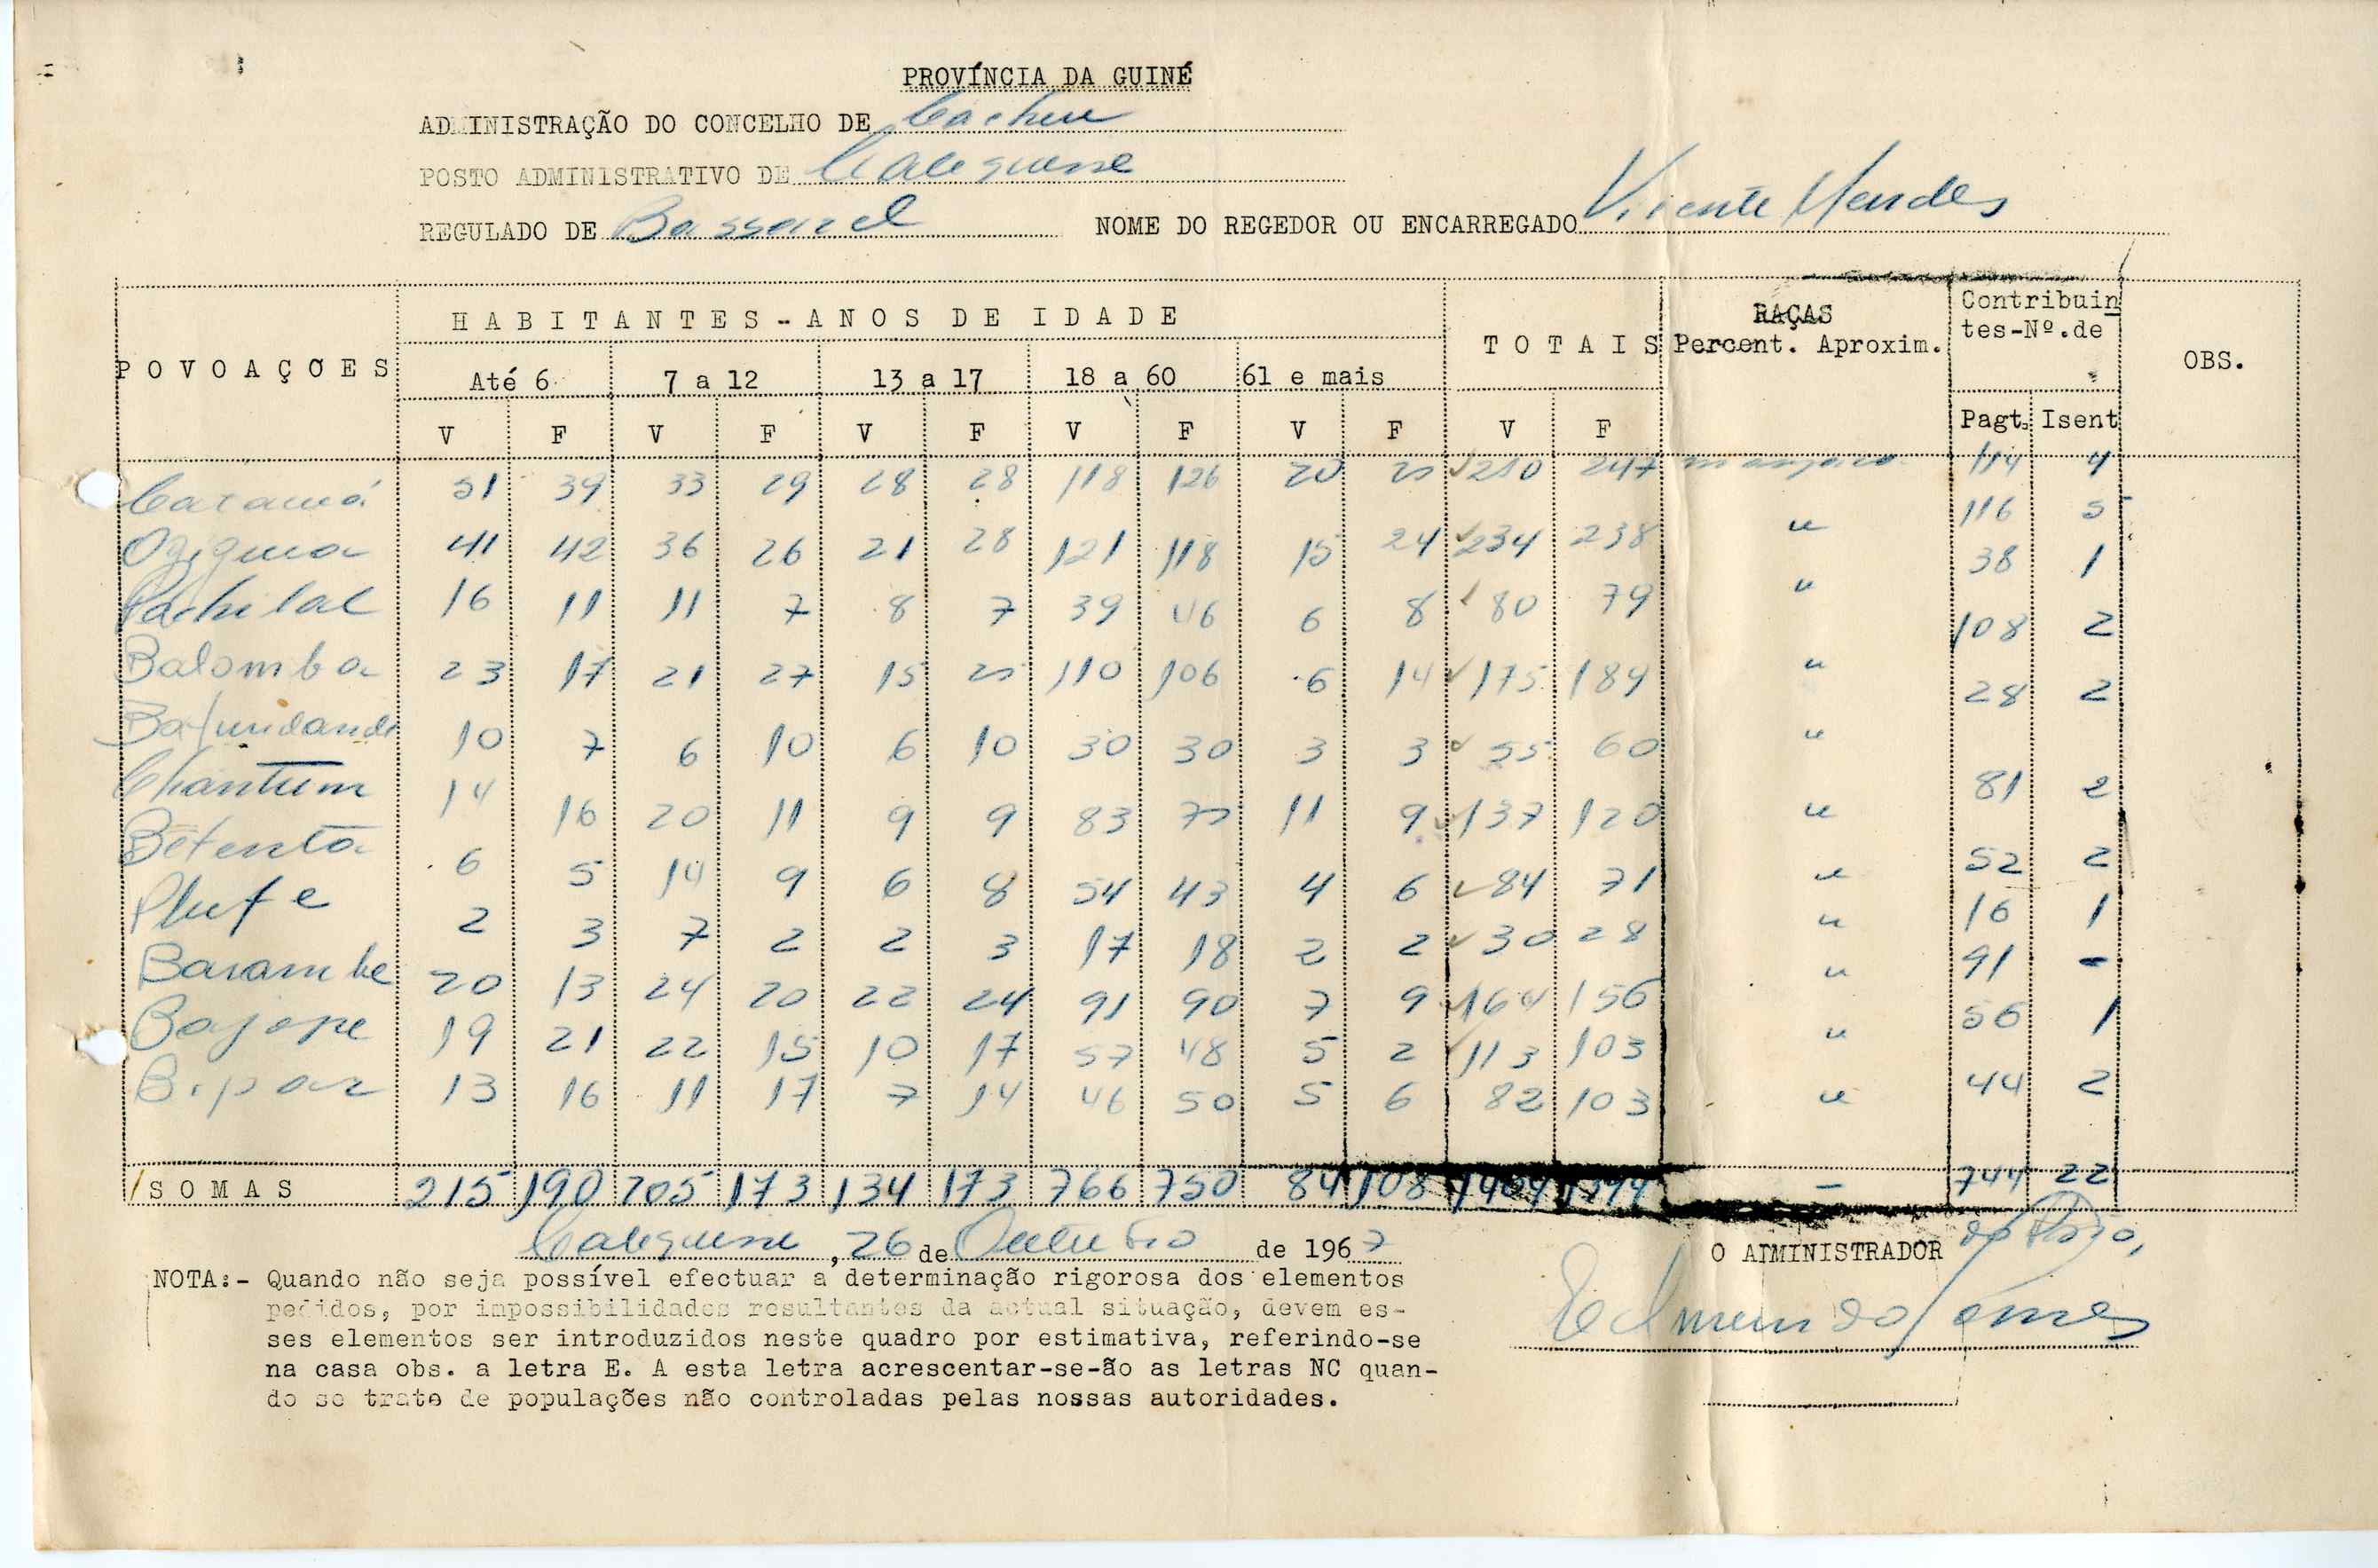 PROVÍNCIA DA GUINÉ
ADMINISTRAÇÃO DO CONCELHO DE Cacheu
POSTO ADMINISTRATIVO DE Calequisse
REGULADO DE Bassarel NOME DO REGEDOR OU ENCARREGADO Vicente Mendes
POVOAÇÕES HABITANTES-ANOS DE IDADE TOTAIS RAÇAS Percent. Aproxim. Contribuin tes-Nº.de OBS.
Até 6 7 a 12 13 a 17 18 a 60 61 e mais
V F V F V F V F V F V F Pagt. Isent
51 39 33 29 28 28 118 126 20 25 250 247 manjaco 114 4
41 42 36 26 21 28 121 118 15 24 234 238 " 116 5
Pachilal 16 11 11 7 8 7 39 46 6 8 80 79 " 38 1
Balomba 23 17 21 27 15 25 110 106 6 14 175 189 " 108 2
10 7 6 10 6 10 30 30 3 3 55 60 " 28 2
Chantum 14 16 20 11 9 9 83 75 11 9 137 120 " 81 2
Betenta 6 5 14 9 6 8 54 43 4 6 84 71 " 52 2
Plufe 2 3 7 2 2 3 17 18 2 2 30 28 " 16 1
Barambe 20 13 24 20 22 24 91 90 7 9 164 156 " 91 -
Bajope 19 21 22 15 10 17 57 48 5 2 113 103 " 56 1
Bipar 13 16 11 17 7 14 46 50 5 6 82 103 " 44 2
SOMAS 215 190 205 173 134 173 766 750 84 108 1404 1394 - 744 22
Calequisse, 26 de Outubro de 1967 O ADMINISTRADOR do Posto,
NOTA:- Quando não seja possível efectuar a determinação rigorosa dos elementos
pedidos, por impossibilidades resultantes da actual situação, devem es-
ses elementos ser introduzidos neste quadro por estimativa, referindo-se
na casa obs. a letra E. A esta letra acrescentar-se-ão as letras NC quan-
do se trate de populações não controladas pelas nossas autoridades.